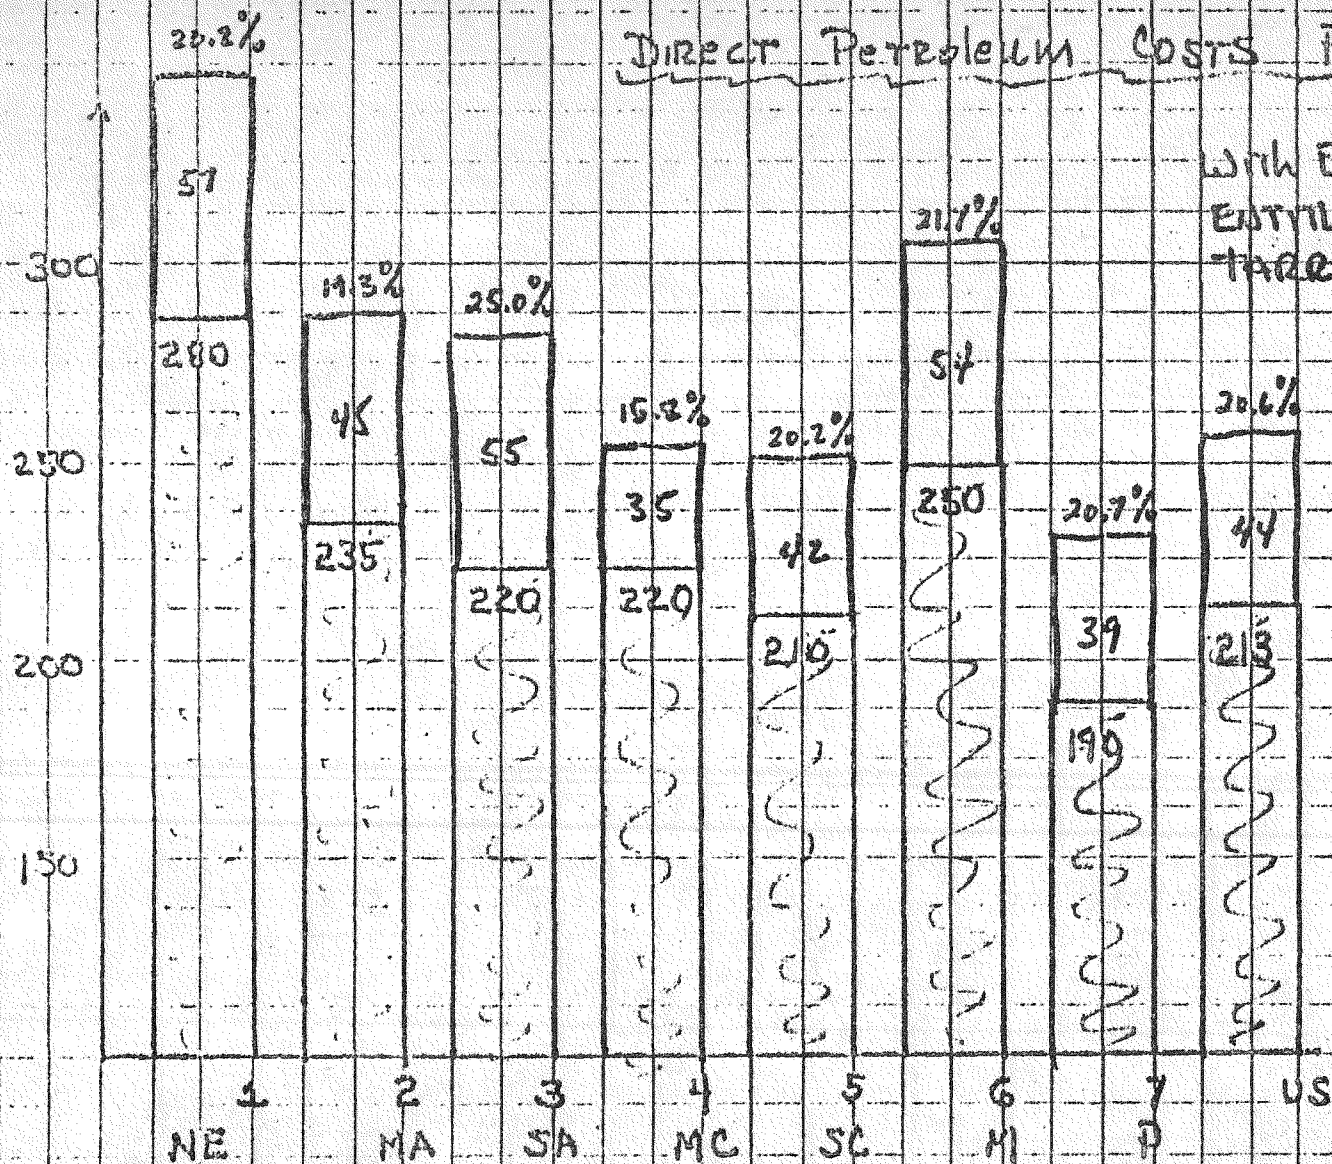 DIRECT PETROLEUM COSTS
WITH
300
250
200
150
20.2%
57
280
19.3%
45
235
25.0%
55
220
15.8%
35
220
20.2%
42
210
21.7%
54
250
20.7%
39
190
20.6%
44
213
1 2 3 4 5 6 7 US
NE MA SA MC SC MI P